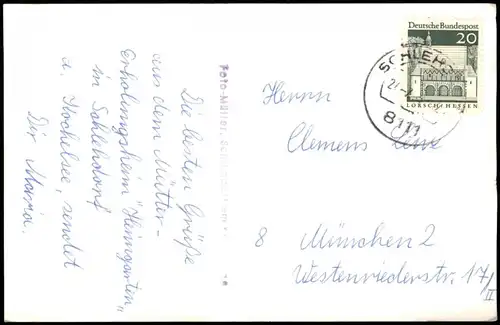 Die besten Grüße
aus dem Mütter-
Erholungsheim "Heimgarten"
in Schlehdorf
a. Kochelsee, sendet
Dir Maria.
Foto-Müller,
Deutsche Bundespost
20
LORSCH/HESSEN
8111
Herrn
Clemens
8 München 2
Westenriederstr. 17/
II